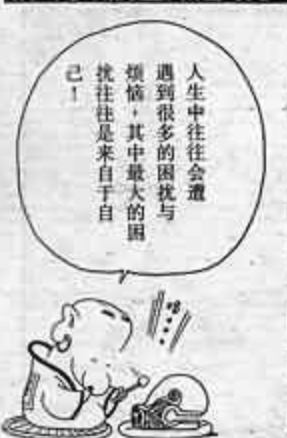 人生中往往会遭
遇到很多的困扰与
烦恼，其中最大的困
扰往往是来自于自
己！